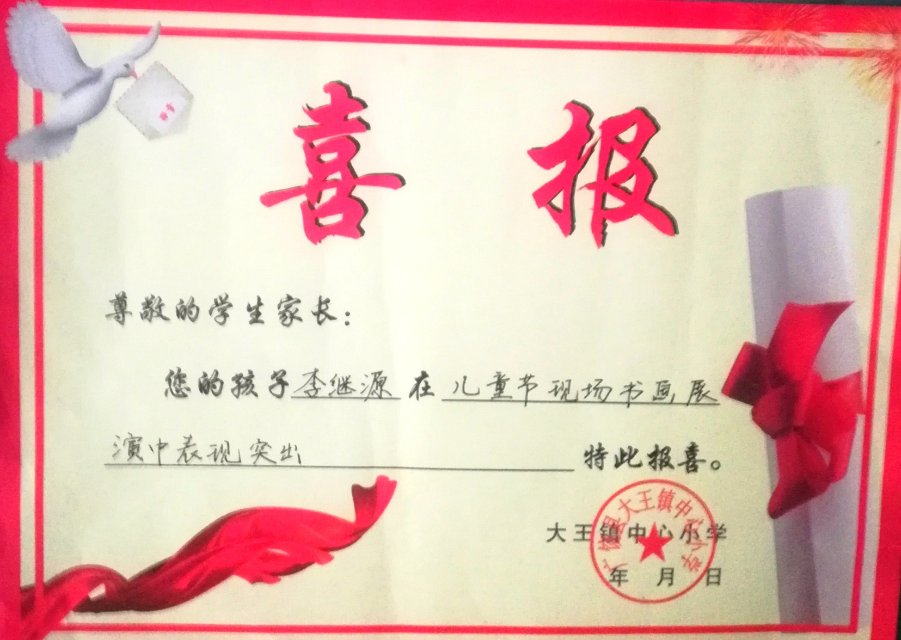 喜报
尊敬的学生家长：
您的孩子李继源在儿童节现场书画展
演中表现突出 特此报喜。
大王镇中心小学
年 月 日
大王镇中心小学